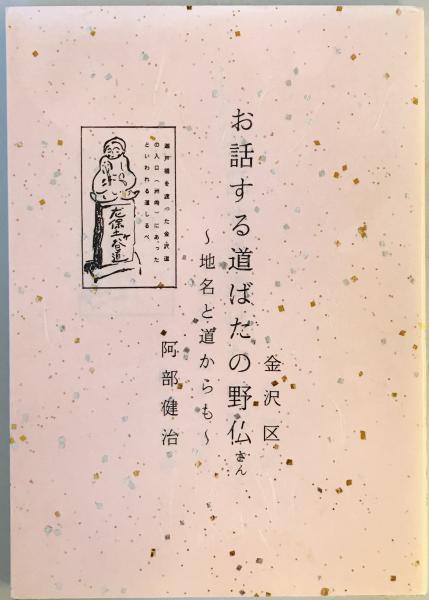 お話する道ばたの野仏さん
金沢区
～地名と道からも～
阿部健治
瀬戸橋を渡った金沢道
の入口（洲崎）にあった
といわれる道しるべ
左保土ヶ谷道